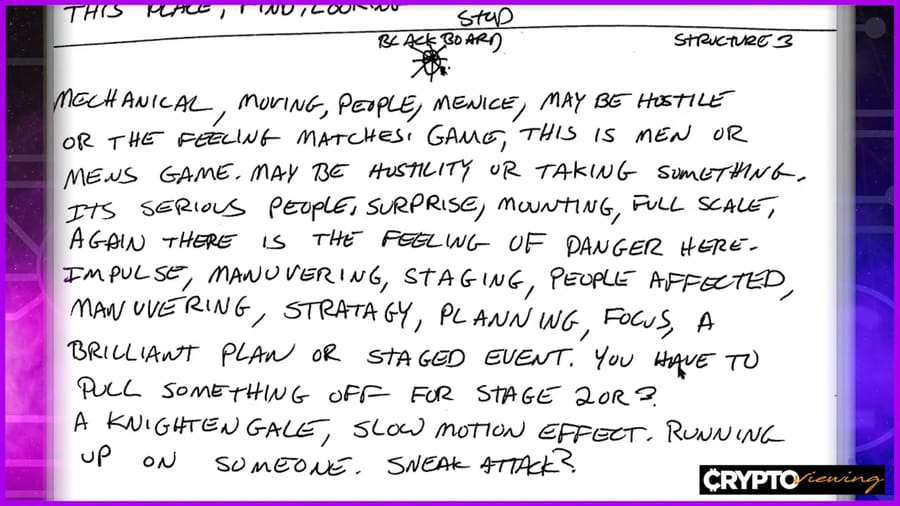 THIS PLACE, FIND, LOOKING
STOP
BLACKBOARD
STRUCTURE 3
MECHANICAL, MOVING, PEOPLE, MENICE, MAY BE HOSTILE
OR THE FEELING MATCHES. GAME, THIS IS MEN OR
MENS GAME. MAY BE HOSTILITY OR TAKING SOMETHING.
ITS SERIOUS PEOPLE, SURPRISE, MOUNTING, FULL SCALE,
AGAIN THERE IS THE FEELING OF DANGER HERE.
IMPULSE, MANUVERING, STAGING, PEOPLE AFFECTED,
MANUVERING, STRATAGY, PLANNING, FOCUS, A
BRILLIANT PLAN OR STAGED EVENT. YOU HAVE TO
PULL SOMETHING OFF FOR STAGE 2 OR 3.
A KNIGHTENGALE, SLOW MOTION EFFECT. RUNNING
UP ON SOMEONE. SNEAK ATTACK?
CRYPTOviewing